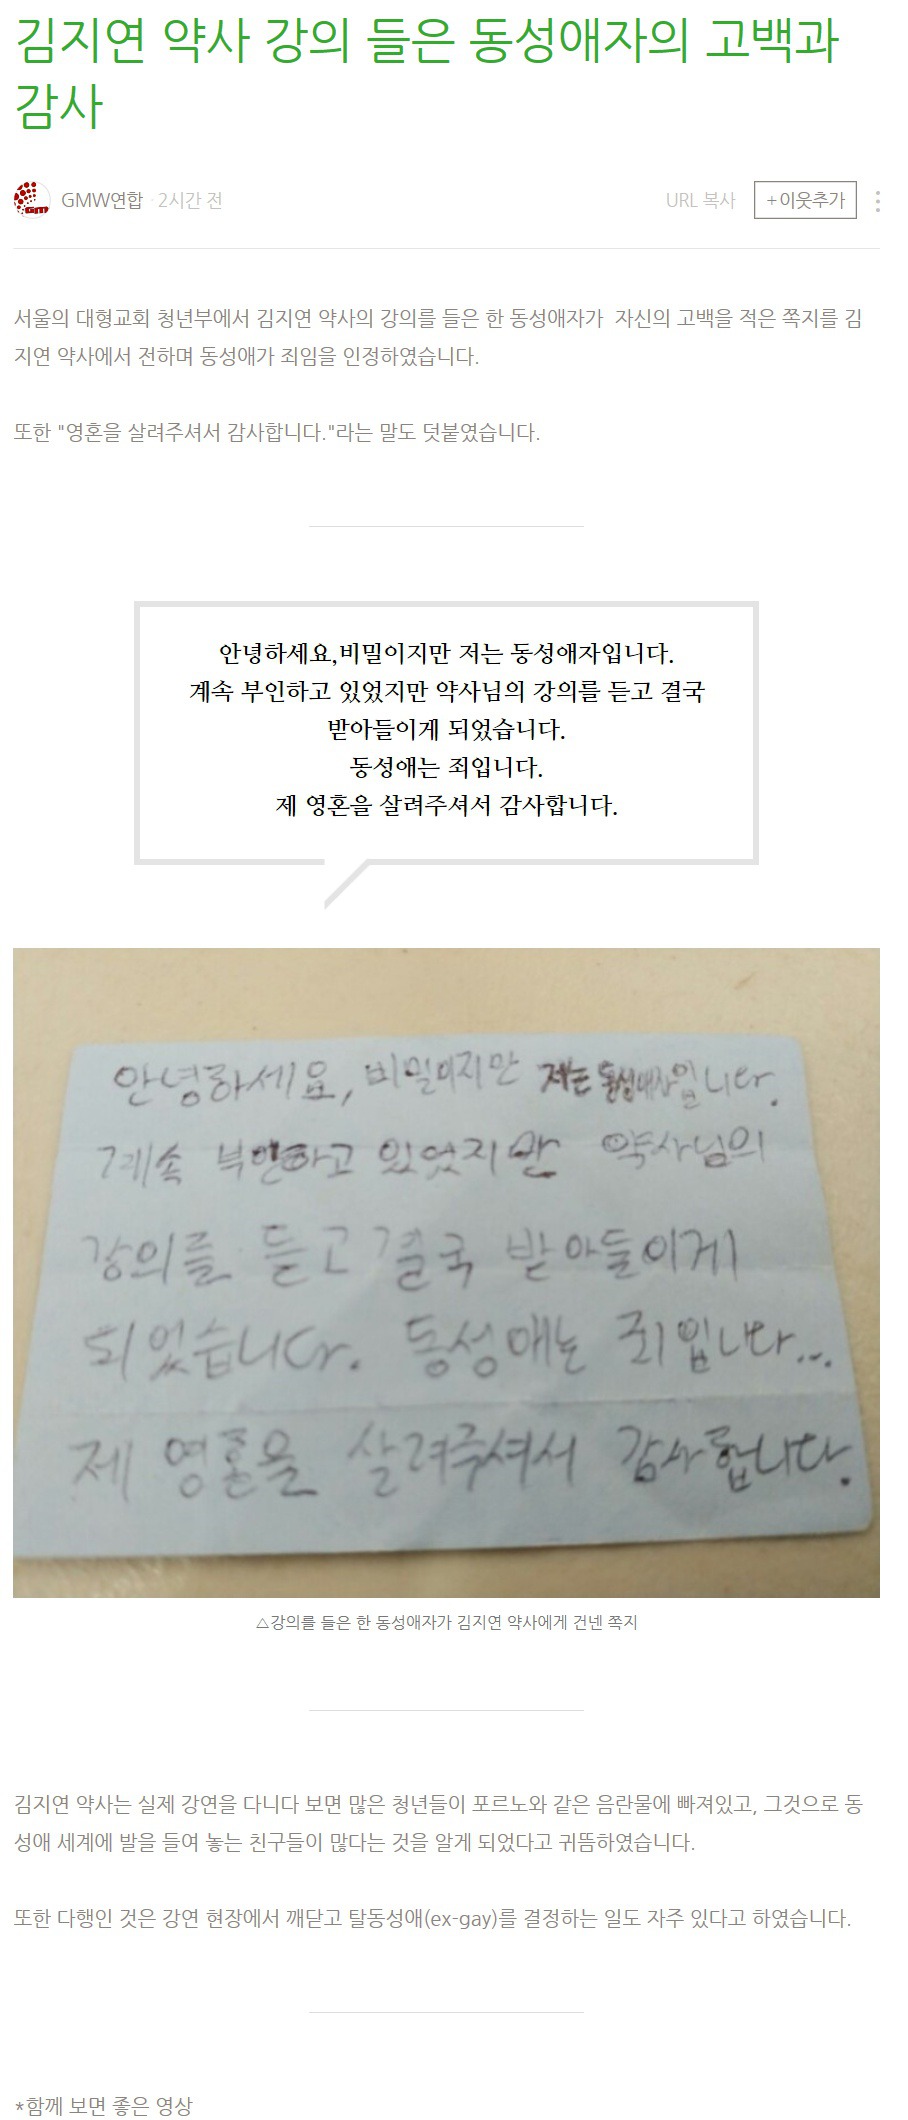 김지연 약사 강의 들은 동성애자의 고백과
감사
GMW연합 · 2시간 전
URL 복사
+이웃추가
서울의 대형교회 청년부에서 김지연 약사의 강의를 들은 한 동성애자가  자신의 고백을 적은 쪽지를 김
지연 약사에서 전하며 동성애가 죄임을 인정하였습니다.
또한 "영혼을 살려주셔서 감사합니다."라는 말도 덧붙였습니다.
안녕하세요,비밀이지만 저는 동성애자입니다.
계속 부인하고 있었지만 약사님의 강의를 듣고 결국
받아들이게 되었습니다.
동성애는 죄입니다.
제 영혼을 살려주셔서 감사합니다.
안녕하세요, 비밀이지만 저는 동성애자입니다.
계속 부인하고 있었지만 약사님의
강의를 듣고 결국 받아들이게
되었습니다. 동성애는 죄입니다...
제 영혼을 살려주셔서 감사합니다.
△강의를 들은 한 동성애자가 김지연 약사에게 건넨 쪽지
김지연 약사는 실제 강연을 다니다 보면 많은 청년들이 포르노와 같은 음란물에 빠져있고, 그것으로 동
성애 세계에 발을 들여 놓는 친구들이 많다는 것을 알게 되었다고 귀뜸하였습니다.
또한 다행인 것은 강연 현장에서 깨닫고 탈동성애(ex-gay)를 결정하는 일도 자주 있다고 하였습니다.
*함께 보면 좋은 영상